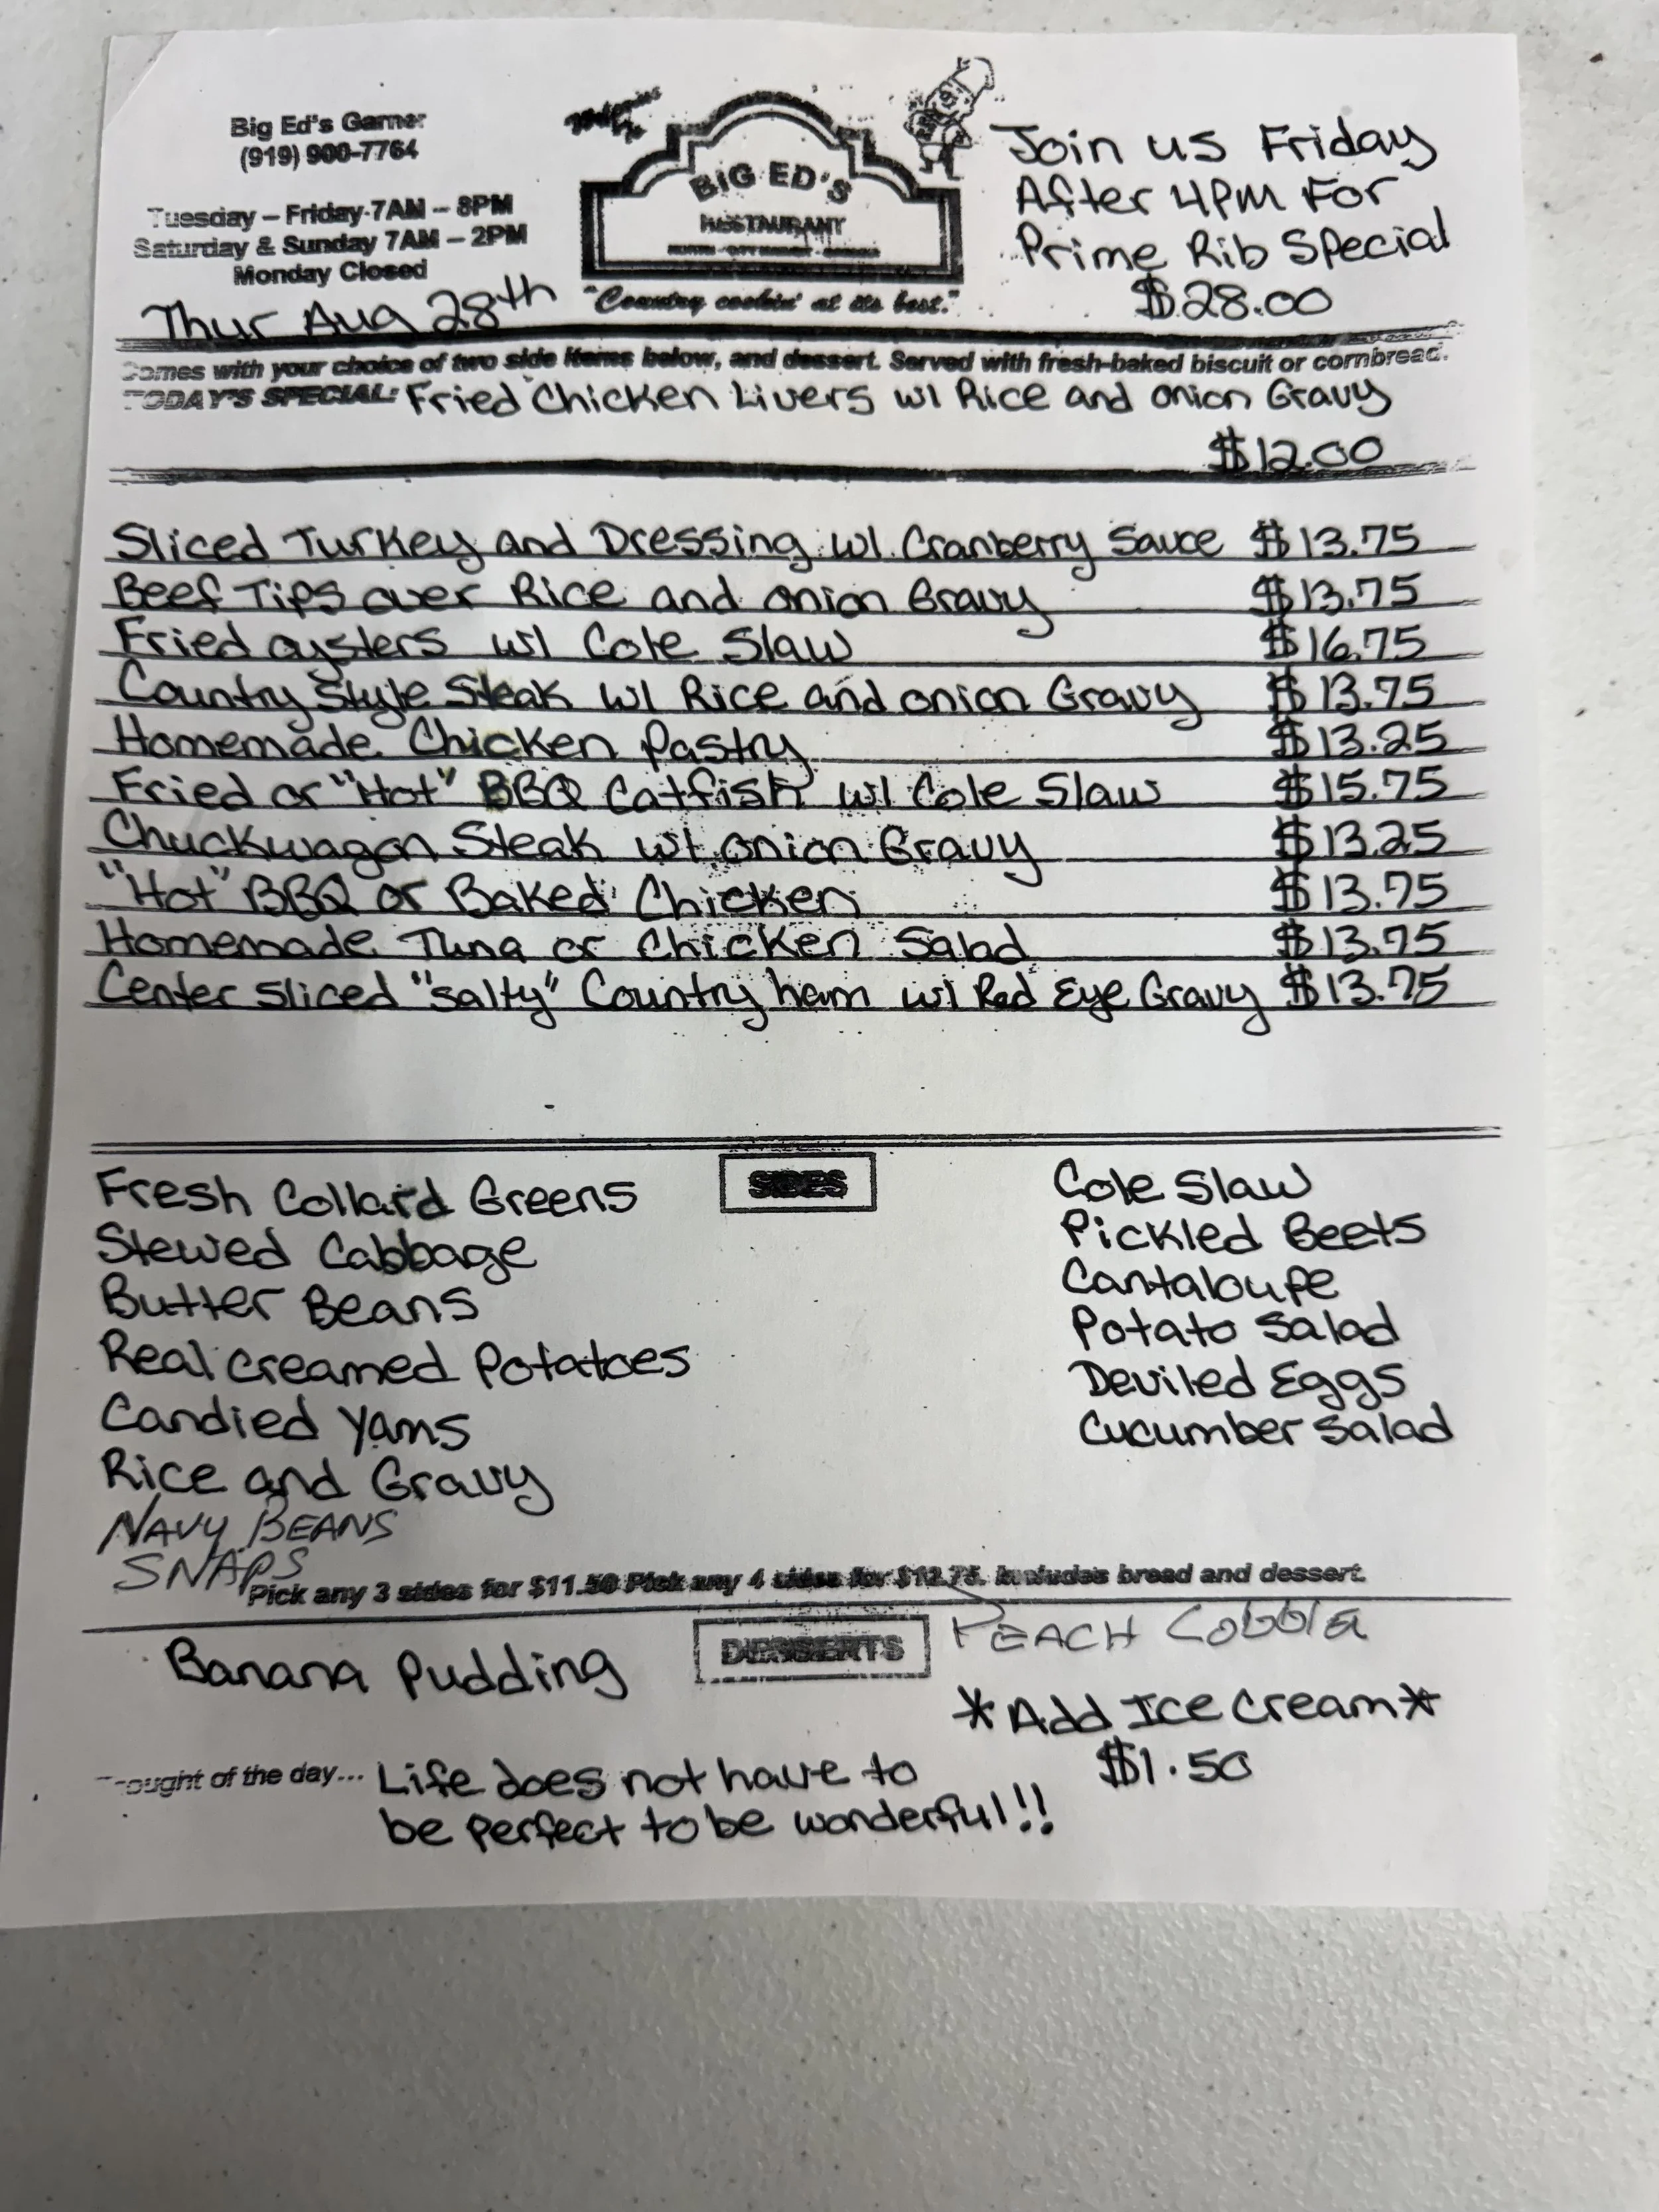 Big Ed's Garner
(919) 900-7764
Tuesday – Friday 7AM – 8PM
Saturday & Sunday 7AM – 2PM
Monday Closed
Thur Aug 28th
BIG ED'S
RESTAURANT
"Country cookin' at its best."
Join us Friday
After 4PM For
Prime Rib Special
$28.00
Comes with your choice of two side items below, and dessert. Served with fresh-baked biscuit or cornbread.
TODAY'S SPECIAL: Fried Chicken Livers w/ Rice and onion Gravy
$12.00
Sliced Turkey and Dressing w/ Cranberry Sauce $13.75
Beef Tips over Rice and onion Gravy $13.75
Fried oysters w/ Cole Slaw $16.75
Country Style Steak w/ Rice and onion Gravy $13.75
Homemade Chicken Pastry $13.25
Fried or "Hot" BBQ Catfish w/ Cole Slaw $15.75
Chuckwagon Steak w/ onion Gravy $13.25
"Hot" BBQ or Baked Chicken $13.75
Homemade Tuna or Chicken Salad $13.75
Center Sliced "salty" Country ham w/ Red Eye Gravy $13.75
SIDES
Fresh Collard Greens
Stewed Cabbage
Butter Beans
Real Creamed Potatoes
Candied Yams
Rice and Gravy
NAVY BEANS
SNAPS
Cole Slaw
Pickled Beets
Cantaloupe
Potato Salad
Deviled Eggs
Cucumber Salad
Pick any 3 sides for $11.50 Pick any 4 sides for $12.75. Includes bread and dessert.
DESSERTS
Banana Pudding
PEACH Cobbla
*Add Ice Cream*
$1.50
ought of the day... Life does not have to
be perfect to be wonderful!!